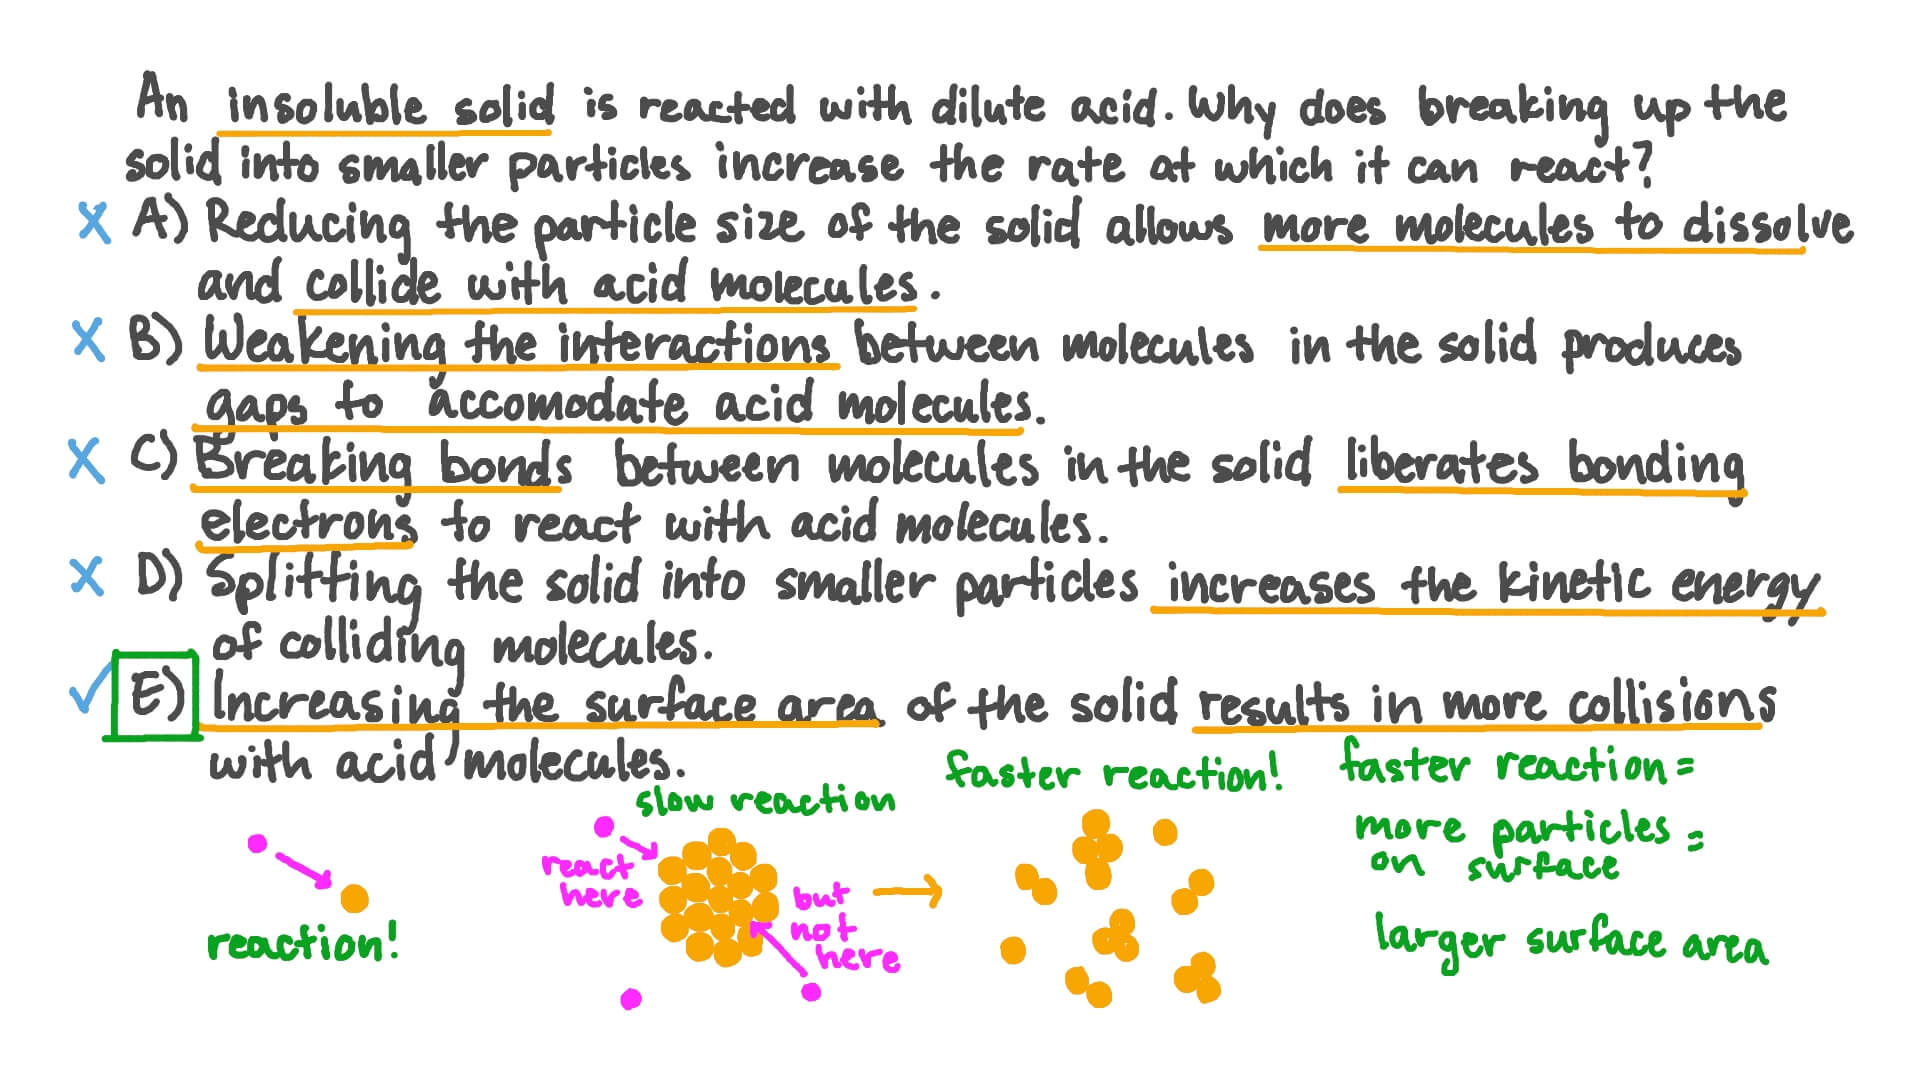 An insoluble solid is reacted with dilute acid. Why does breaking up the
solid into smaller particles increase the rate at which it can react?
X A) Reducing the particle size of the solid allows more molecules to dissolve
and collide with acid molecules.
X B) Weakening the interactions between molecules in the solid produces
gaps to accomodate acid molecules.
X C) Breaking bonds between molecules in the solid liberates bonding
electrons to react with acid molecules.
X D) Splitting the solid into smaller particles increases the kinetic energy
of colliding molecules.
✓ E) Increasing the surface area of the solid results in more collisions
with acid molecules.
reaction!
slow reaction
react
here
but
not
here
faster reaction!
faster reaction =
more particles =
on surface
larger surface area